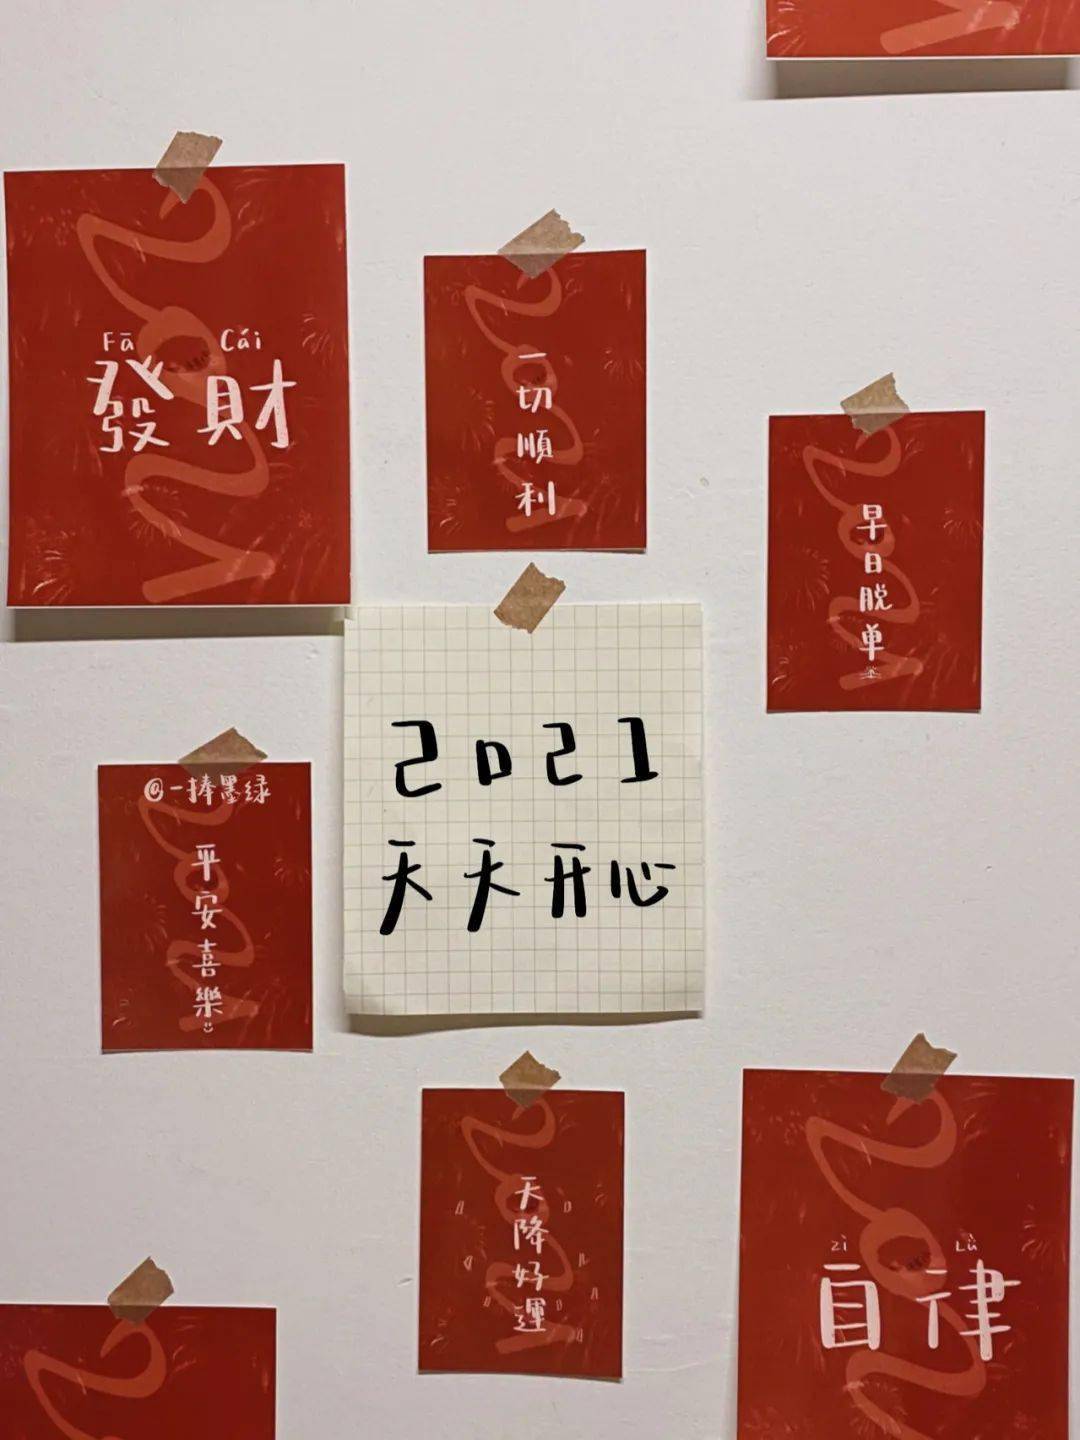 Fā Cái
發財
一切順利
早日脱单
2021
天天开心
@一捧墨绿
平安喜樂
天降好運
zì Lǜ
自律